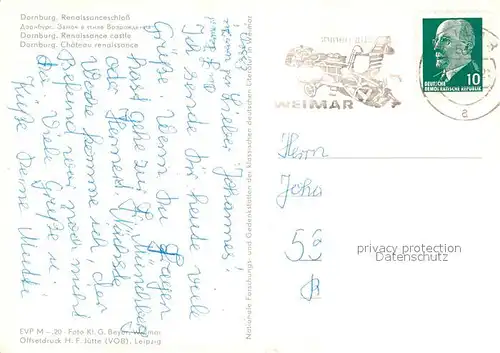 Dornburg. Renaissanceschloß
Дорнбург. Замок в стиле Возрождения
Dornburg. Renaissance castle
Dornburg. Château renaissance
Lieber Johannes!
Ich sende dir heute viele
Grüße. Wenn du Fragen
hast gehe zu
oder Nächste
Woche komme ich, den
Befund noch nicht
da. Viele Grüße u.
Küße Deine Mutti
EVP M –.20 · Foto Kl. G. Beyer, Weimar
Offsetdruck H. F. Jütte (VOB), Leipzig
Nationale Forschungs- und Gedenkstätten der klassischen deutschen Literatur in Weimar
WEIMAR
DEUTSCHE
DEMOKRATISCHE REPUBLIK
10
a
Herrn
Joha
privacy protection
Datenschutz